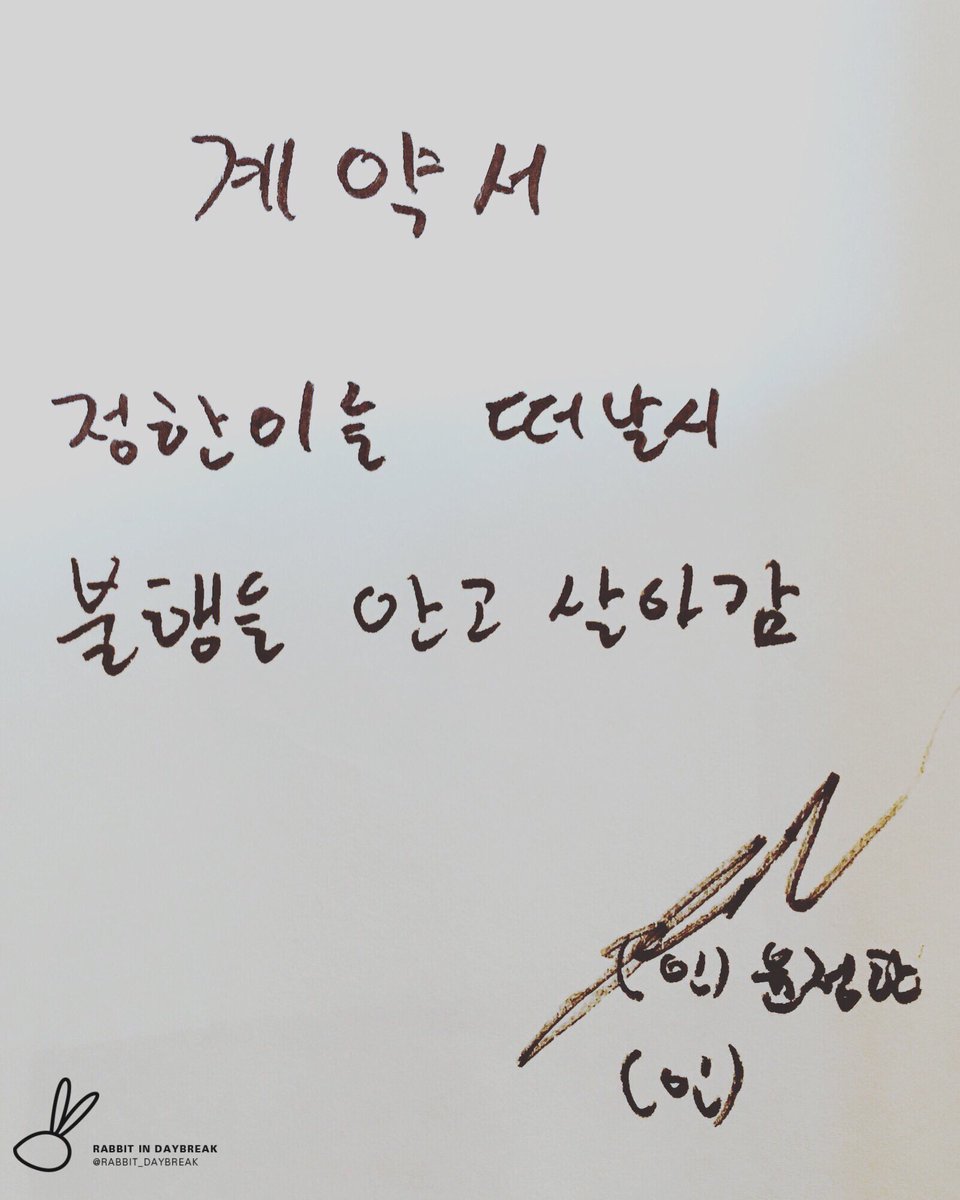 계약서
정한이를 떠날시
불행을 안고 살아감
(인) 윤정한
(인)
RABBIT IN DAYBREAK
@RABBIT_DAYBREAK